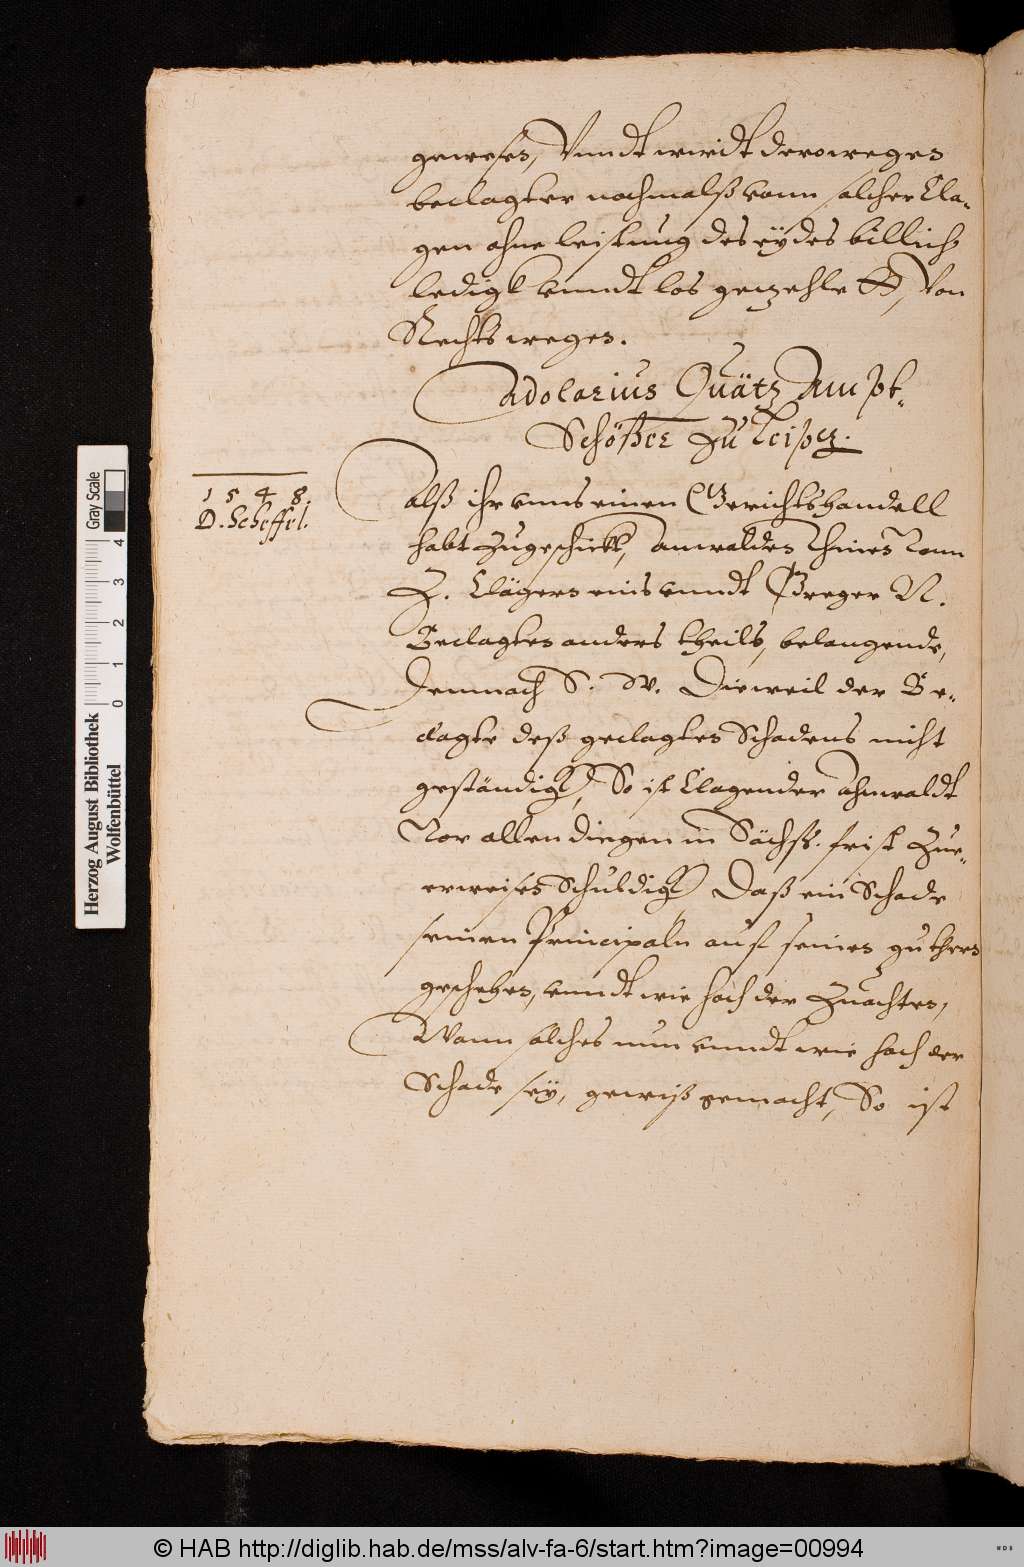 gewesen, Vnndt wirdt deroweges
beclagter nochmalß vonn solcher Cla-
gen ohne leistung des eÿdes billich
ledigk vnndt los gezehlett, Von
Rechts weges.
Adolarius Quätz Ampt-
Schößer zu Leipzg.
1548.
D. Scheffel.
Alß ihr vnns einen Gerichtshandell
habt zugeschickt, Anwaldes
Z. Clägers eins vnndt Greger N.
Beclagtes anders theils, belangende,
Demnach S. W. Dieweil der Be-
clagte deß geclagtes Schadens nicht
geständig, So ist Clagender Ahnwaldt
Vor allen dingen in Sächss. frist Zue-
erweisen Schuldig Daß ein Schade
seinen Principaln auf seines guthers
geschehen, vnndt wie hoch der Zuachten,
Wann solches nun vnndt wie hoch der
Schade seÿ, gewiß gemacht, So ist
Herzog August Bibliothek
Wolfenbüttel
Gray Scale
0 1 2 3 4
© HAB http://diglib.hab.de/mss/alv-fa-6/start.htm?image=00994